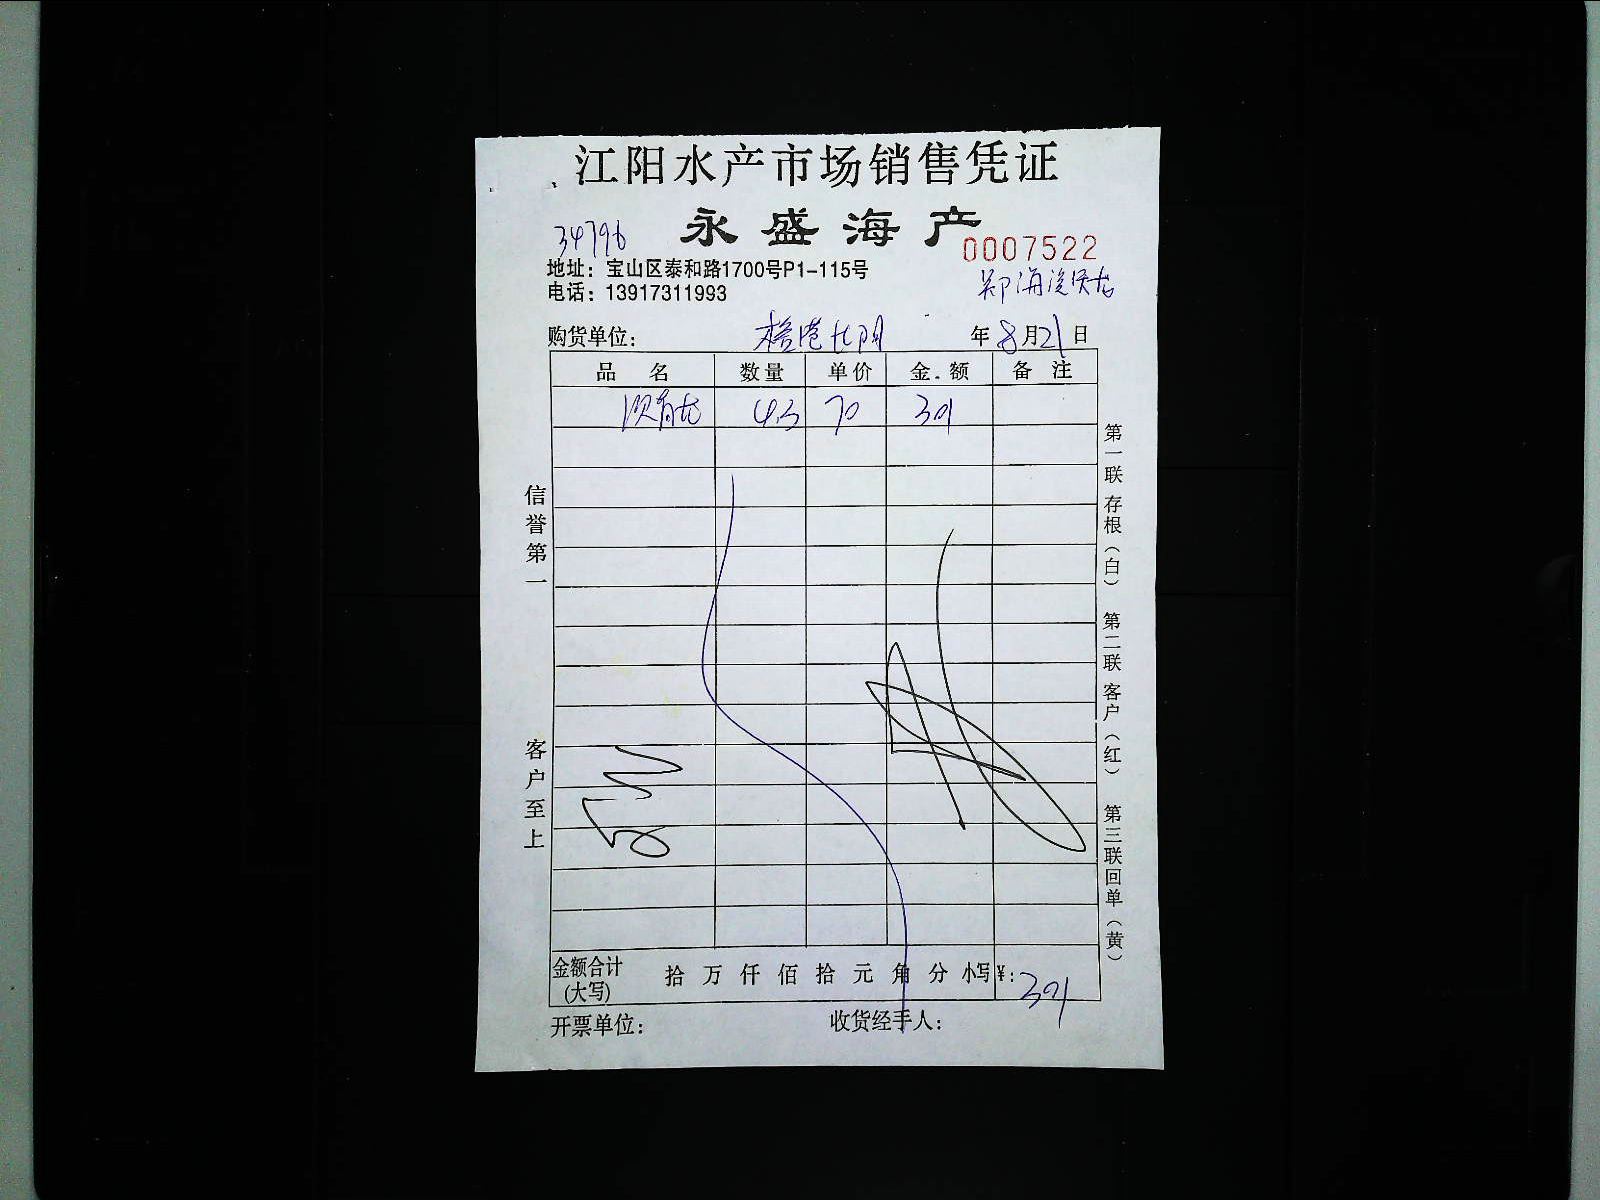 江阳水产市场销售凭证
34796 永盛海产 0007522
地址：宝山区泰和路1700号P1-115号
电话：13917311993
购货单位： 年8月21日
品名 数量 单价 金额 备注
4.3 70 301
信誉第一 客户至上
第一联存根（白） 第二联客户（红） 第三联回单（黄）
金额合计(大写) 拾 万 仟 佰 拾 元 角 分 小写¥：301
开票单位： 收货经手人：